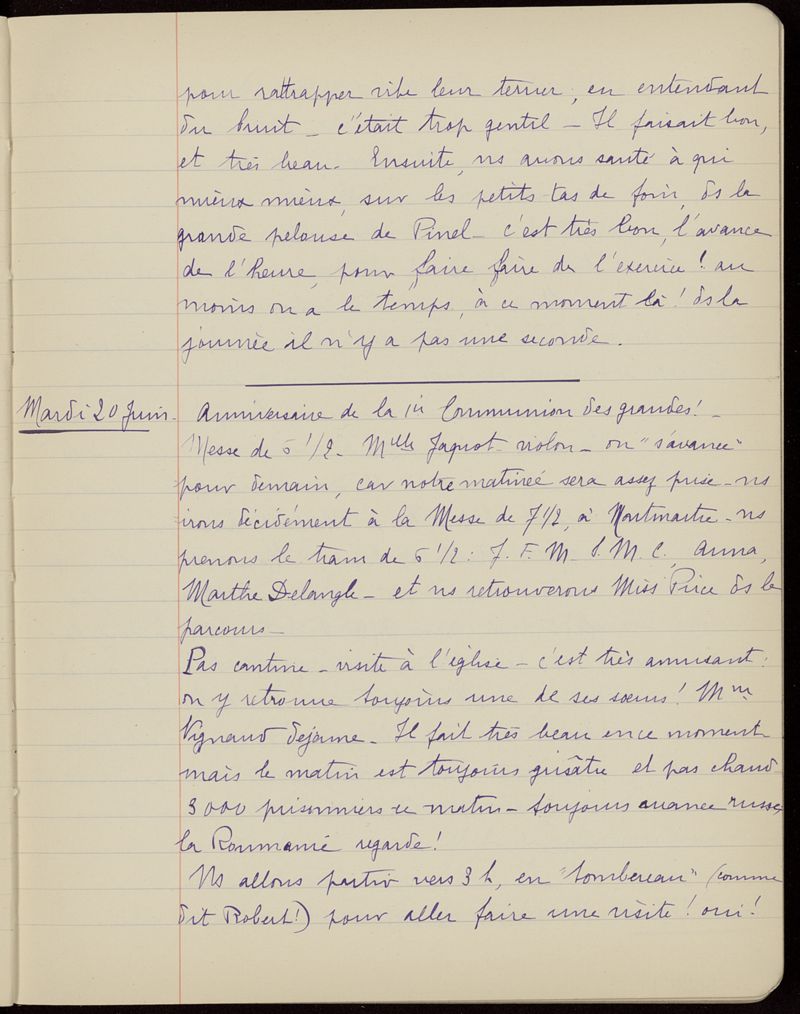 pour rattrapper vite leur terrier, en entendant
du bruit - c'était trop gentil - Il faisait bon,
et très beau. Ensuite, ns avons sauté à qui
mieux mieux, sur les petits tas de foin, ds la
grande pelouse de Pinel - c'est très bon, l'avance
de l'heure, pour faire faire de l'exercice ! au
moins on a le temps, à ce moment là ! ds la
journée il n'y a pas une seconde.
Mardi 20 Juin. Anniversaire de la 1re Communion des grandes ! -
Messe de 6 1/2 - Melle Jaquot - violon - on "s'avance"
pour demain, car notre matinée sera assez prise - ns
irons décidément à la Messe de 7 1/2, à Montmartre - ns
prenons le tram de 6 1/2 : J. F. M. S. M. C. Anna,
Marthe Delangle - et ns retrouverons Miss Pirce ds le
parcours -
Pas cantine - visite à l'église - c'est très amusant :
on y retrouve toujours une de ses sœurs ! Mme
Vignaud déjeune - Il fait très beau en ce moment
mais le matin est toujours grisâtre et pas chaud -
3000 prisonniers ce matin - toujours avance russe,
la Roumanie regarde !
Ns allons partir vers 3 h, en "tombereau" (comme
dit Robert !) pour aller faire une visite ! oui !